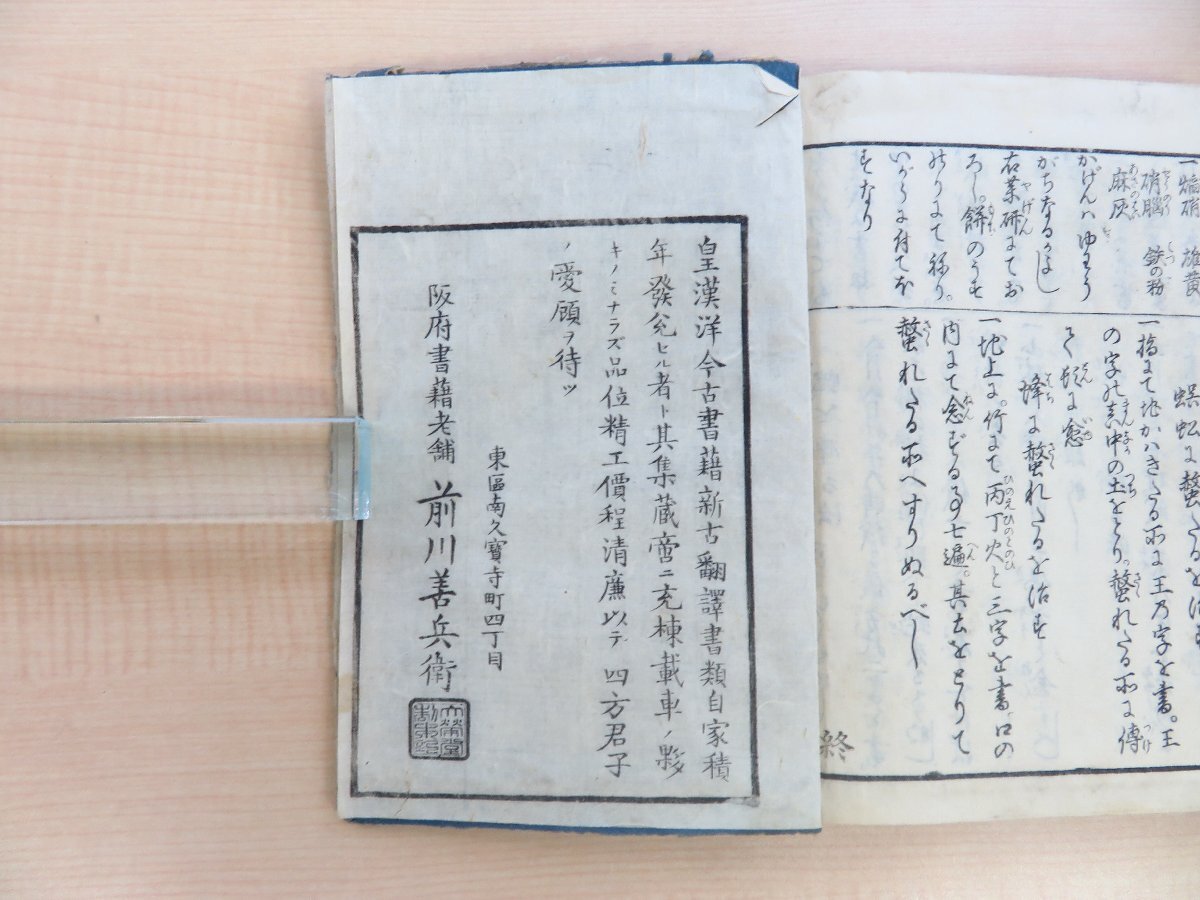 一焔硝 雄黄
硝脳 鉄の粉
麻灰
かげんハゆわう
がちなるかよし
右薬研にてお
ろし。餅のうす
のりにて祢り。
いがらに付てほ
すなり
蜈蚣に螫
一指にて地かハきたる所に王乃字を書。王
の字の真中の土をとり。螫れたる所に傅
蜂に螫れたるを治す
一地上に。竹にて丙丁火と三字を書。口の
内にて念ずる事七遍。其土をとりて
螫れたる所へすりぬるべし
終
皇漢洋今古書藉新古翻譯書類自家積
年發兌セル者ト其集蔵啻ニ充棟載車ノ夥
キノミナラズ品位精工價程清廉以テ四方君子
ノ愛顧ヲ待ツ
東區南久寳寺町四丁目
阪府書藉老舗 前川善兵衛